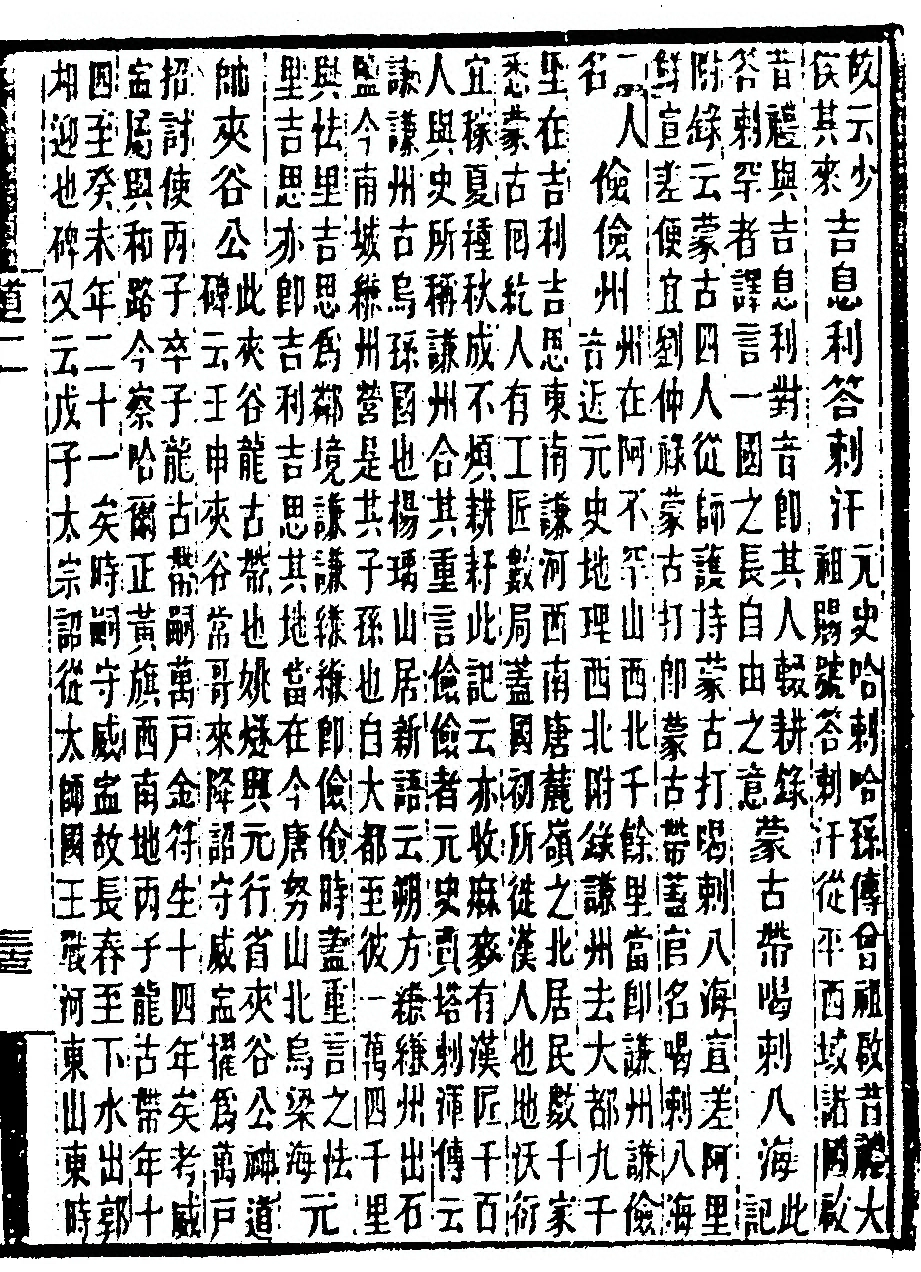 故云少
侯其來
吉息利答剌汗
元史哈剌哈孫傳曾祖啟昔禮大
祖賜號答剌汗從平西域諸國啟
昔禮與吉息利對音即其人輟耕錄
答剌罕者譯言一國之長自由之意
蒙古帶喝剌八海
此
記
附錄云蒙古四人從師護持蒙古打喝剌八海宣差阿里
鮮宣差便宜劉仲祿蒙古打即蒙古帶蓋官名喝剌八海
二人
名
儉儉州
州在阿不罕山西北千餘里當即謙州謙儉
音近元史地理西北附錄謙州去大都九千
里在吉利吉思東南謙河西南唐麓嶺之北居民數千家
悉蒙古回紇人有工匠數局蓋國初所徙漢人也地沃衍
宜稼夏種秋成不煩耕耔此記云亦收麻麥有漢匠千百
人與史所稱謙州合其重言儉儉者元史賈塔剌渾傳云
謙謙州古烏孫國也楊瑀山居新語云朔方縑縑州出石
鹽今南城縑州營是其子孫也白大都至彼一萬四千里
與怯里吉思爲鄰境謙謙縑縑即儉儉時蓋重言之怯
里吉思亦即吉利吉思其地當在今唐努山北烏梁海元
帥夾谷公
此夾谷龍古帶也姚燧興元行省夾谷公神道
碑云壬申夾谷常哥來降詔守威寍擢爲萬戶
招討使丙子卒子龍古帶嗣萬戶金符生十四年矣考威
寍屬興和路今察哈爾正黃旗西南地丙子龍古帶年十
四至癸未年二十一矣時嗣守威寍故長春至下水出郭
却迎也碑又云戊子太宗詔從太師國王戰河東山東時
道二